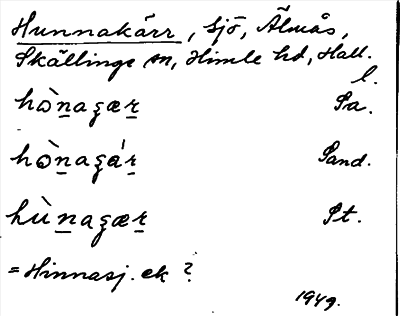 Hunnakärr, sjö, Älmås,
Skällinge sn, Himle hd, Hall.
l.
hònaʒær Sa.
hònaʒár Sand.
hùnaʒær St.
= Hinnasj. ek ?
1949.